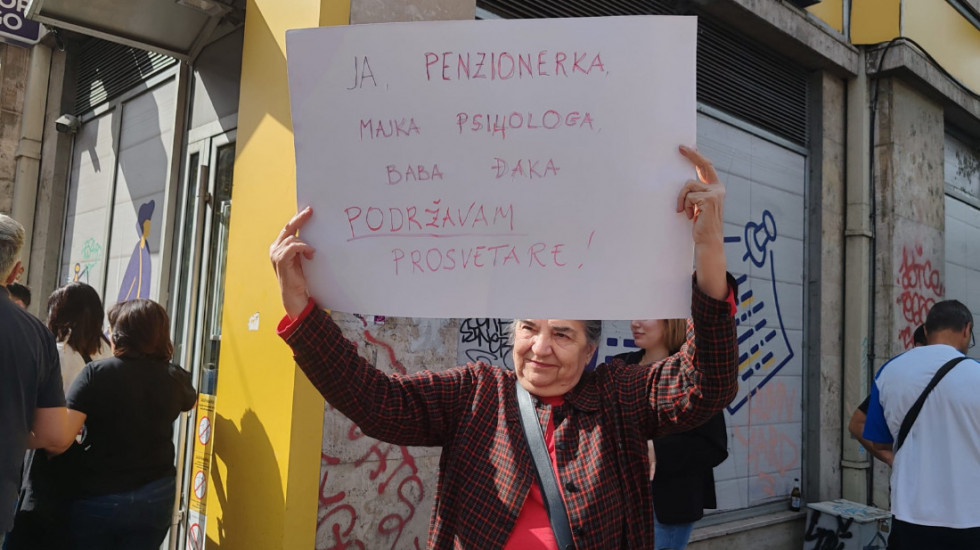 JA, PENZIONERKA,
MAJKA PSIHOLOGA,
BABA ĐAKA
PODRŽAVAM
PROSVETARE!